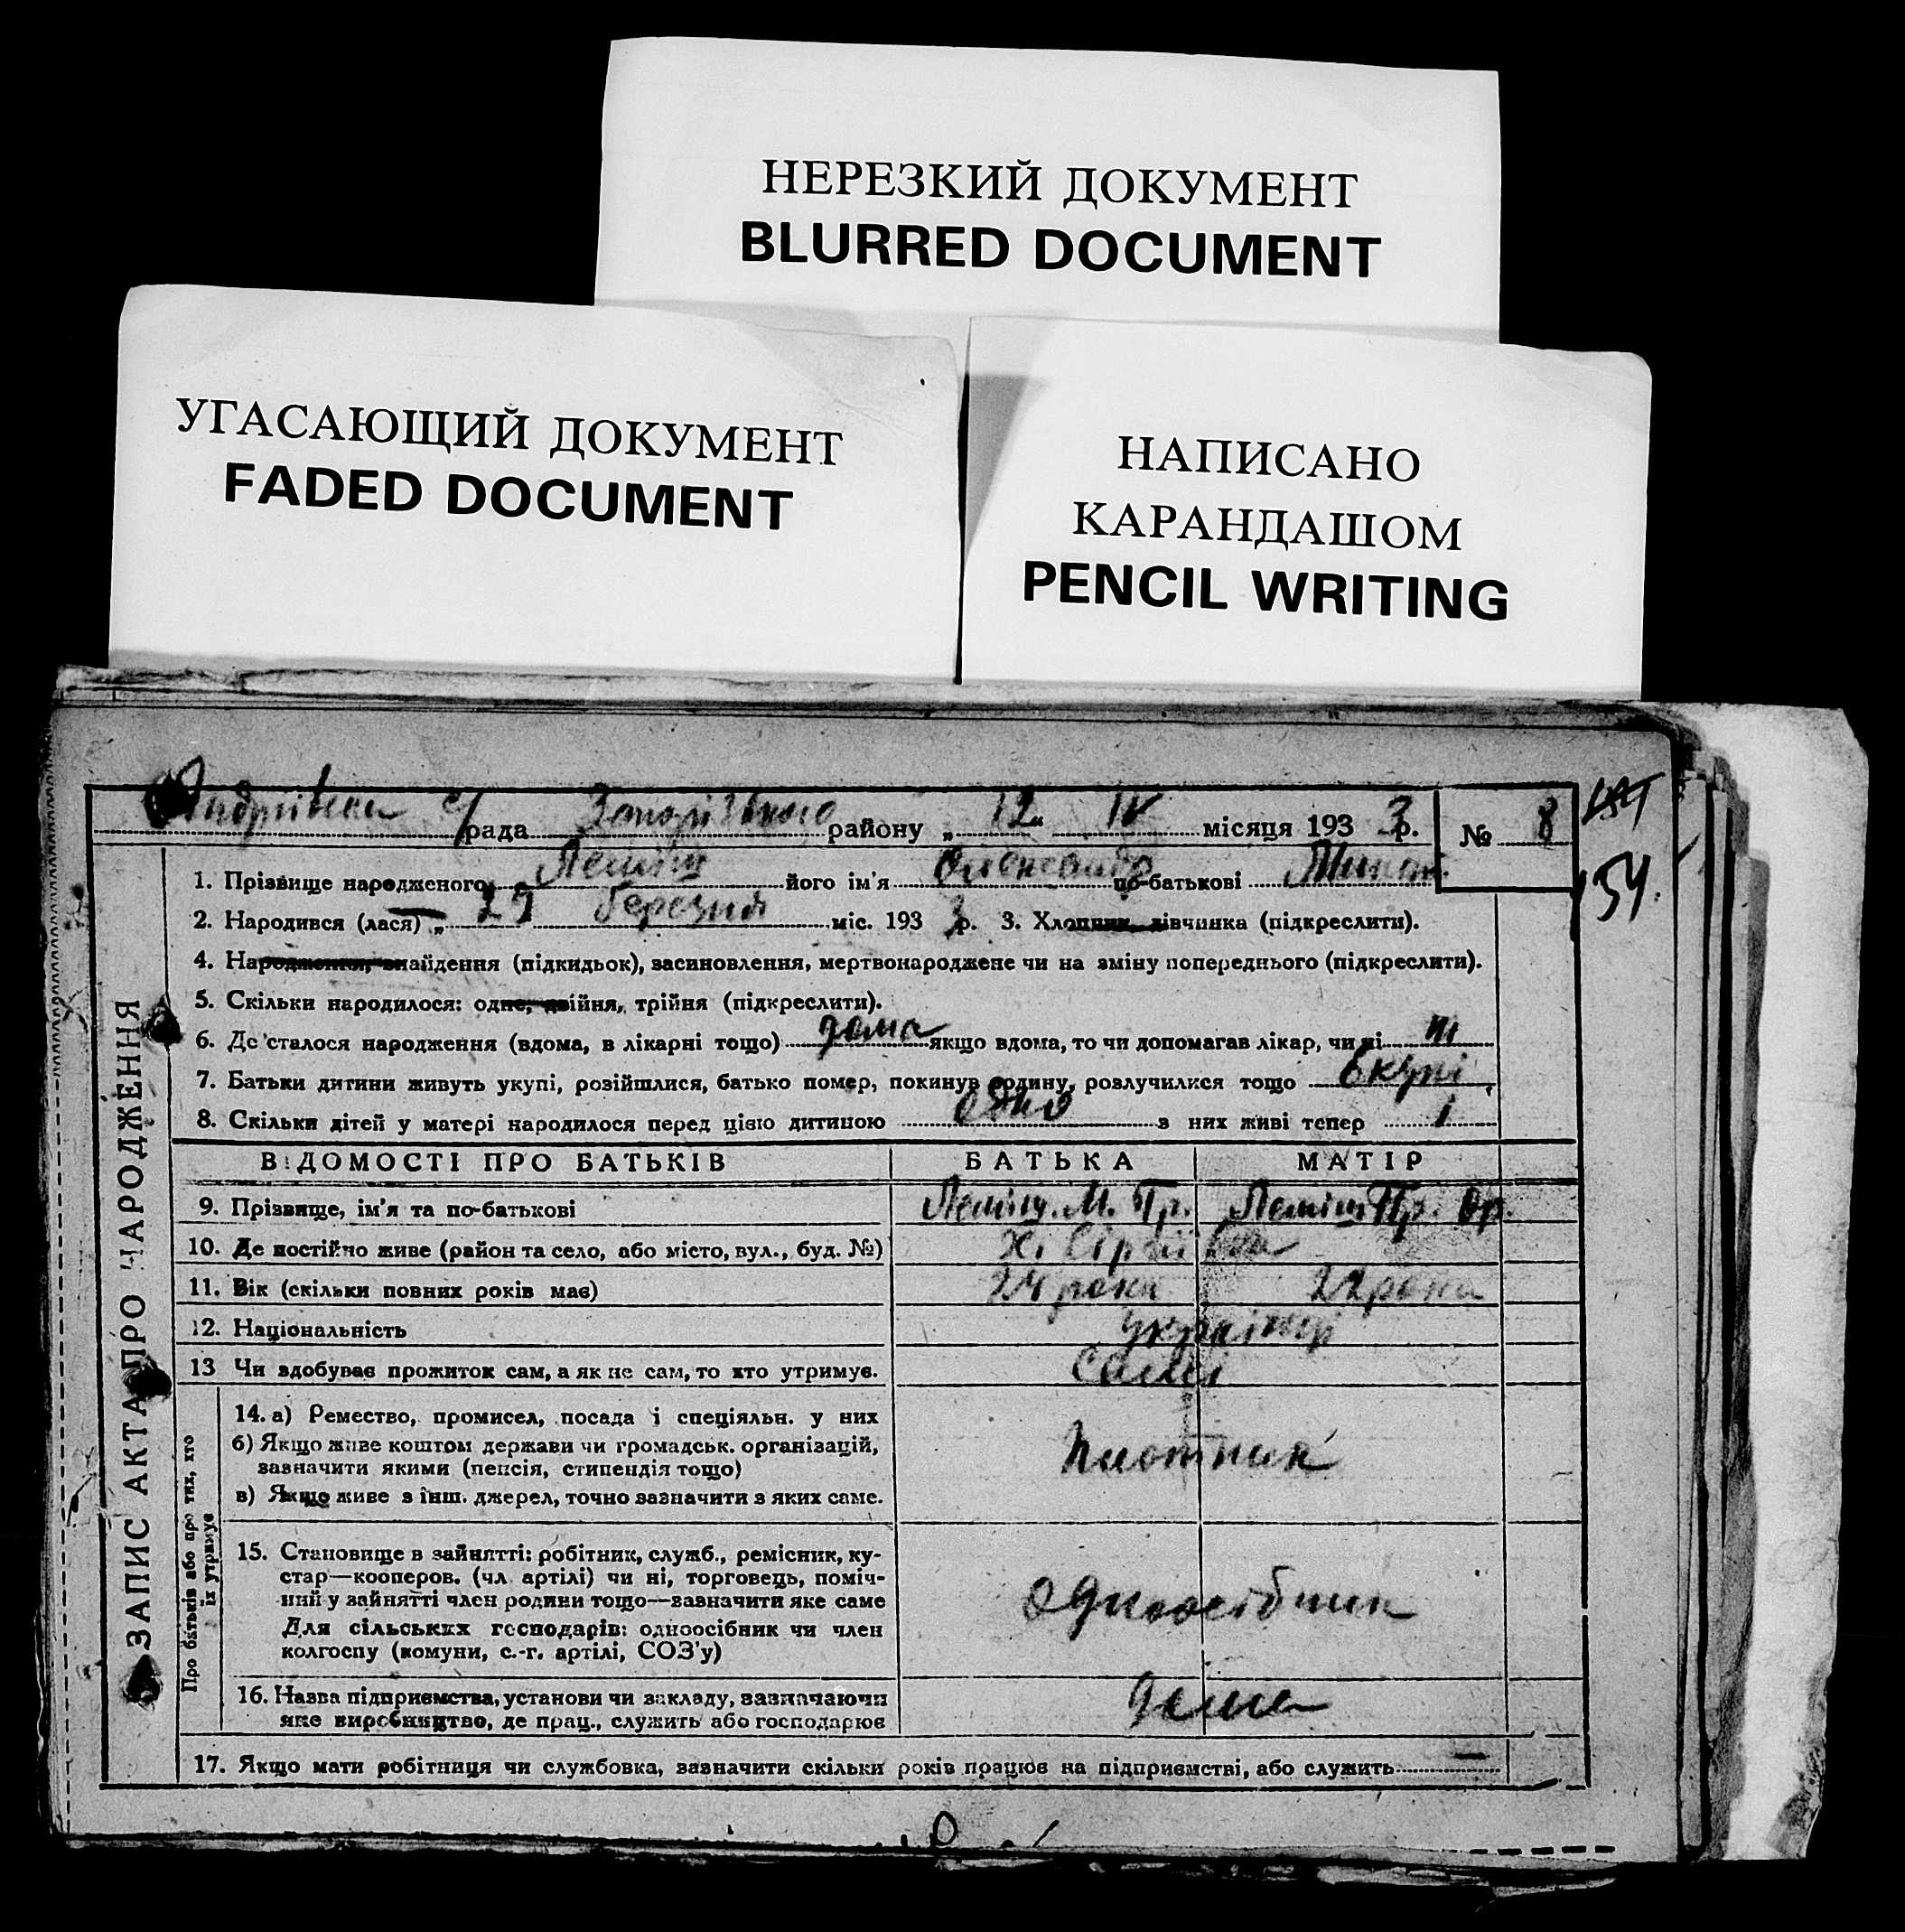 НЕРЕЗКИЙ ДОКУМЕНТ
BLURRED DOCUMENT
УГАСАЮЩИЙ ДОКУМЕНТ
FADED DOCUMENT
НАПИСАНО
КАРАНДАШОМ
PENCIL WRITING
с/рада Запорізького району „ 12 “ IV місяця 193 3 р. № 8
154.
1. Прізвище народженого Леміш його ім'я Олександр по-батькові
2. Народився (лася) „ 29 березня міс. 193 3 р. 3. Хлопчик, дівчинка (підкреслити).
4. Народження, знайдення (підкидьок), засиновлення, мертвонароджене чи на зміну попереднього (підкреслити).
5. Скільки народилося: одне, двійня, трійня (підкреслити).
6. Де сталося народження (вдома, в лікарні тощо) дома якщо вдома, то чи допомагав лікар, чи ні ні
7. Батьки дитини живуть укупі, розійшлися, батько помер, покинув родину, розлучилися тощо Вкупі
8. Скільки дітей у матері народилося перед цією дитиною одно з них живі тепер 1
ЗАПИС АКТА ПРО НАРОДЖЕННЯ
ВІДОМОСТІ ПРО БАТЬКІВ БАТЬКА МАТІР
9. Прізвище, ім'я та по-батькові Леміш. М. Гр. Леміш Пр.
10. Де постійно живе (район та село, або місто, вул., буд. №) х.
11. Вік (скільки повних років має) 24 роки 22 роки
12. Національність українці
13 Чи здобуває прожиток сам, а як не сам, то хто утримує. Самі
Про батьків або про тих, хто їх утримує
14. а) Ремество, промисел, посада і спеціяльн. у них
б) Якщо живе коштом держави чи громадськ. організацій,
зазначити якими (пенсія, стипендія тощо) Плотник
в) Якщо живе з інш. джерел, точно зазначити з яких саме.
15. Становище в зайнятті: робітник, служб., ремісник, ку-
стар—кооперов. (чл. артілі) чи ні, торговець, поміч-
ний у зайнятті член родини тощо—зазначити яке саме одноосібник
Для сільських господарів: одноосібник чи член
колгоспу (комуни, с.-г. артілі, СОЗ'у)
16. Назва підприємства, установи чи закладу, зазначаючи дома
яке виробництво, де прац., служить або господарює
17. Якщо мати робітниця чи службовка, зазначити скільки років працює на підприємстві, або служить —